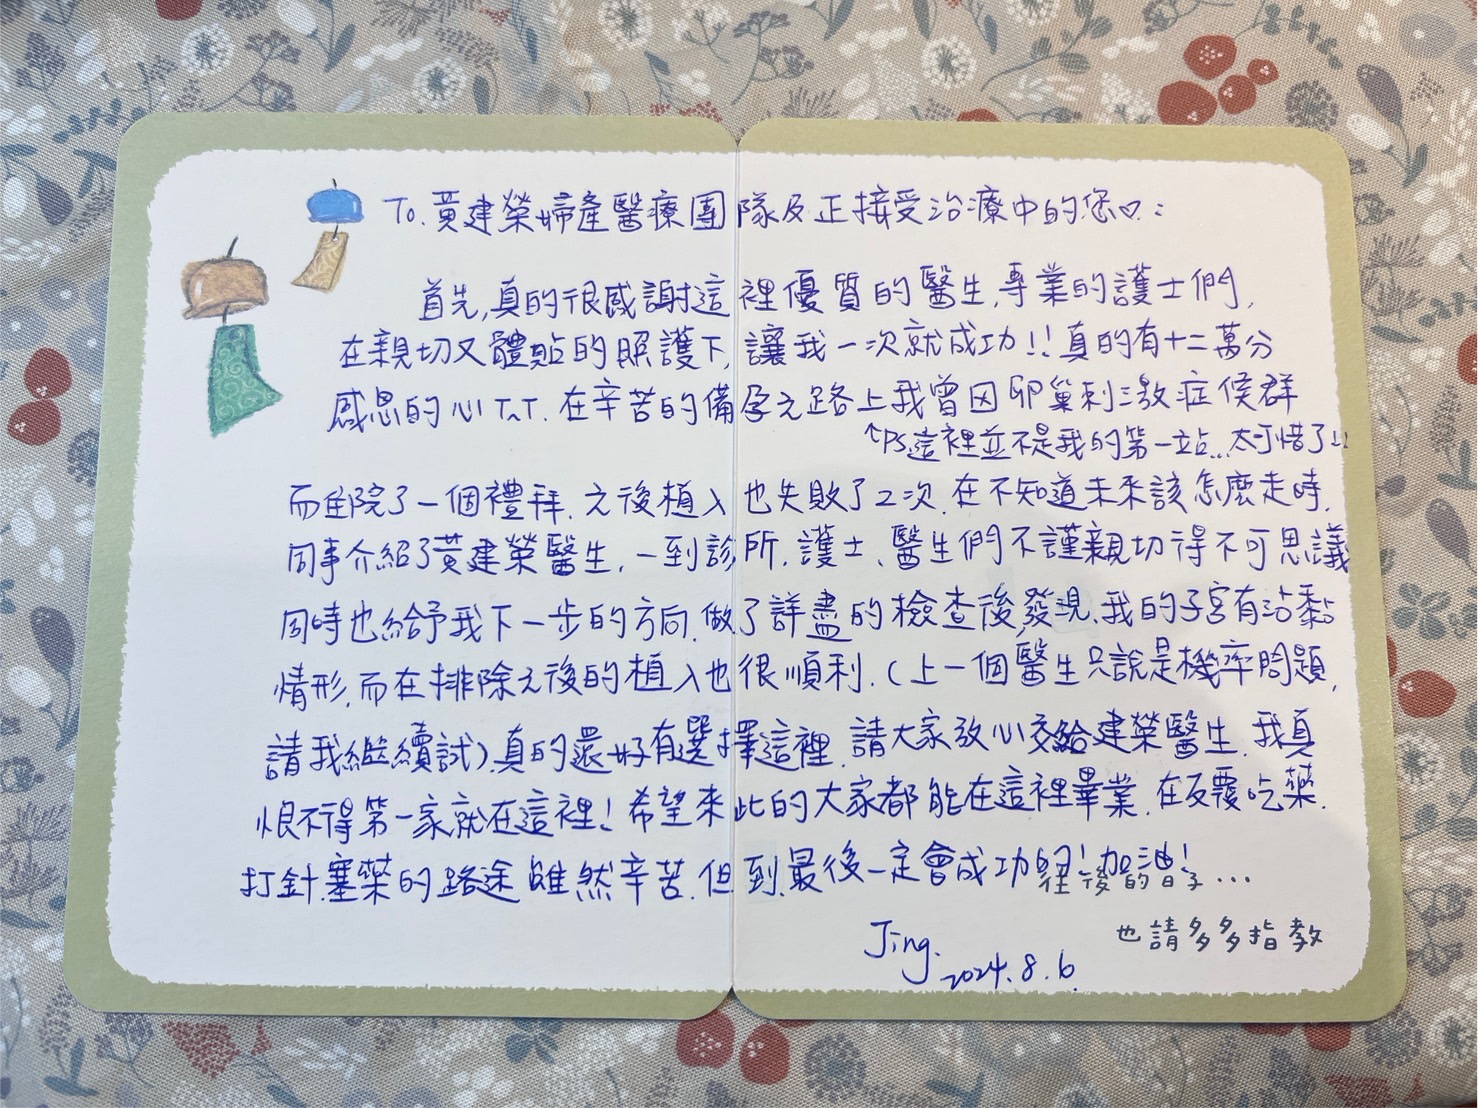 To. 黃建榮婦產醫療團隊及正接受治療中的您♡：
首先,真的很感謝這裡優質的醫生,專業的護士們,
在親切又體貼的照護下,讓我一次就成功!!真的有十二萬分
感恩的心TnT.在辛苦的備孕之路上我曾因卵巢刺激症候群
↑PS.這裡並不是我的第一站...太可惜了!!
而住院了一個禮拜.之後植入也失敗了2次.在不知道未來該怎麼走時,
同事介紹了黃建榮醫生,一到診所,護士、醫生們不謹親切得不可思議
同時也給予我下一步的方向.做了詳盡的檢查後,發現,我的子宮有沾黏
情形,而在排除之後的植入也很順利.(上一個醫生只說是機率問題,
請我繼續試),真的還好有選擇這裡.請大家放心交給建榮醫生.我真
恨不得第一家就在這裡!希望來此的大家都能在這裡畢業.在反覆吃藥.
打針.塞藥的路途雖然辛苦.但到最後一定會成功的!加油!
往後的日子...
也請多多指教
Jing.
2024.8.6.